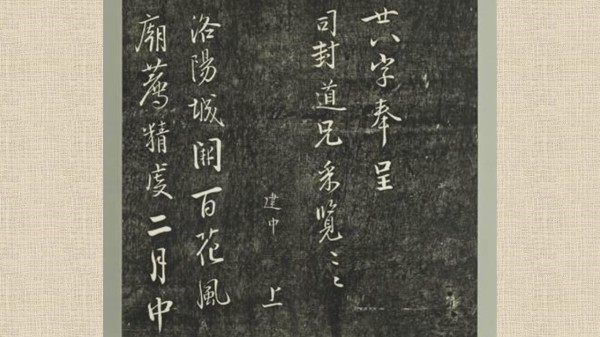 廿八字奉呈
司封道兄采覽
建中 上
洛陽城闕百花風
廟薦精虔二月中